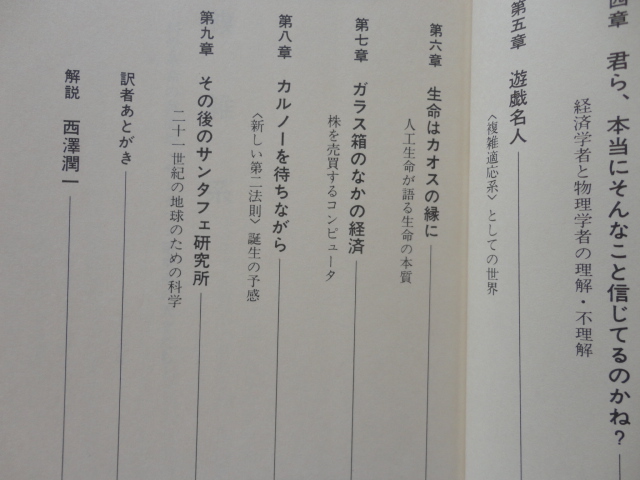 四章 君ら、本当にそんなこと信じてるのかね?
経済学者と物理学者の理解・不理解
第五章 遊戯名人
〈複雑適応系〉としての世界
第六章 生命はカオスの縁に
人工生命が語る生命の本質
第七章 ガラス箱のなかの経済
株を売買するコンピュータ
第八章 カルノーを待ちながら
〈新しい第二法則〉誕生の予感
第九章 その後のサンタフェ研究所
二十一世紀の地球のための科学
訳者あとがき
解説 西澤潤一